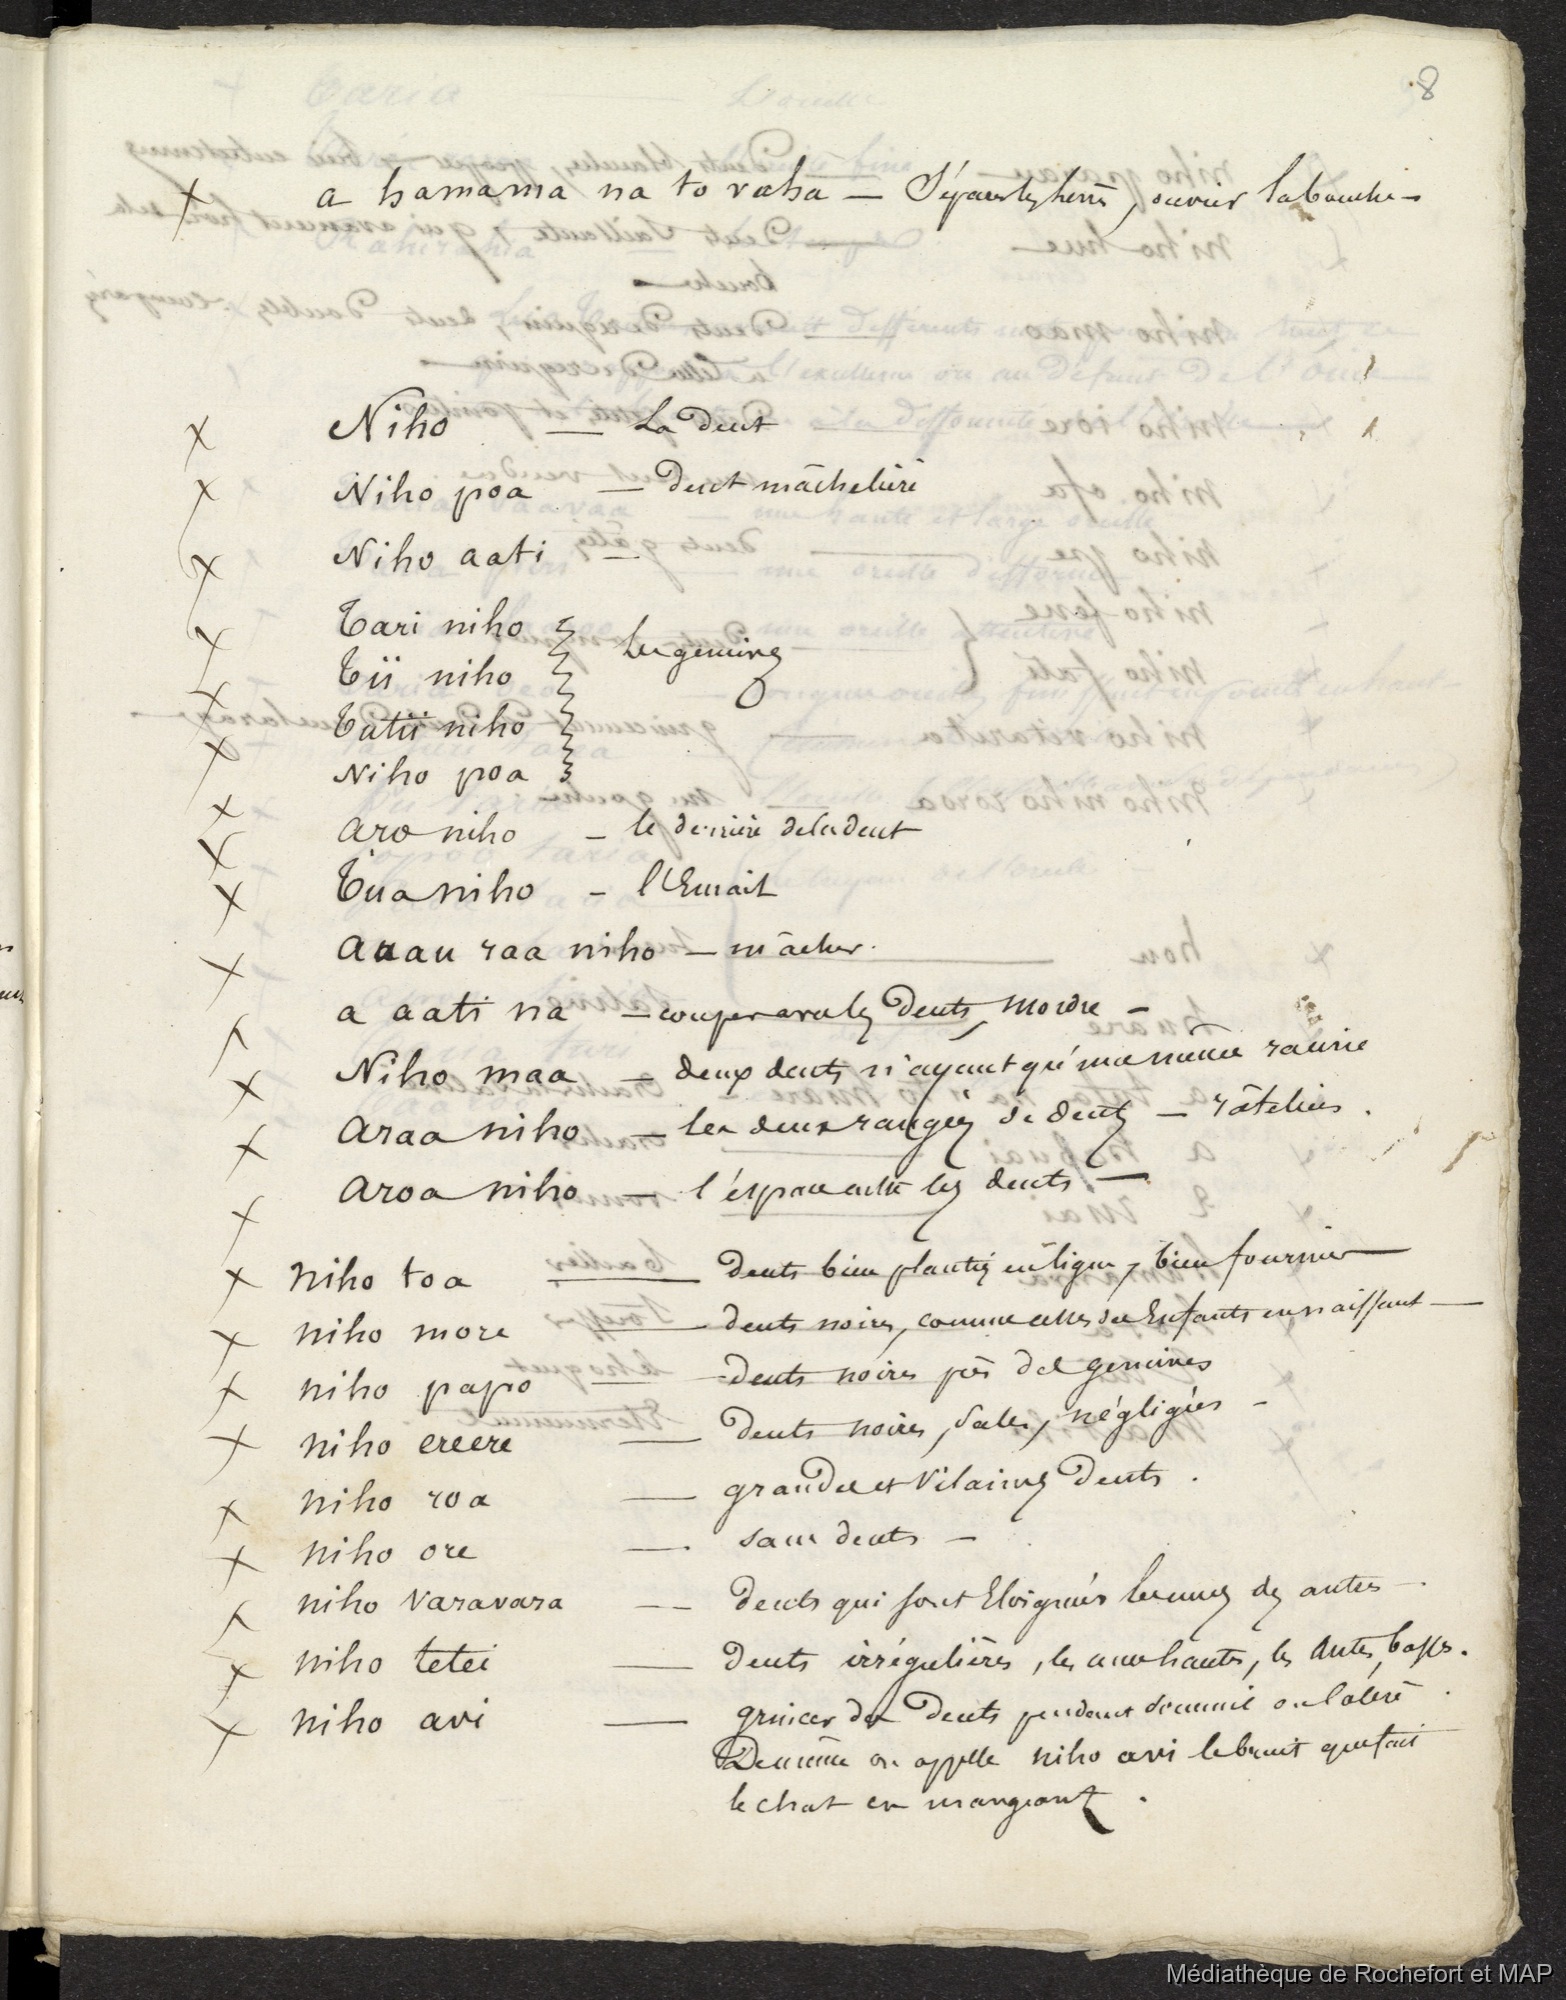 8
a hamama na to vaha — Séparer les lèvres, ouvrir la bouche —
Niho — La Dent
Niho poa — Dent mâchelière
Niho aati —
Tari niho
Tii niho
les gencives
Tatii niho
Niho poa
aro niho — le derrière de la dent
Tua niho — l'Émail
auau raa niho — mâcher.
a aati na — couper avec les Dents, mordre —
Niho maa — deux dents n'ayant qu'une même racine
araa niho — les deux rangées de dents — râteliers.
aroa niho — l'espace entre les dents —
niho toa — dents bien plantées en ligne, bien fournies —
niho more — dents noires, comme celles des Enfants en naissant —
niho papo — dents noires près des gencives
niho ereere — dents noires, sales, négligées —
niho roa — grandes et vilaines Dents.
niho ore — sans dents —
niho varavara — dents qui sont Eloignées les unes des autres —
niho tetei — Dents irrégulières, les unes hautes, les autres basses.
niho avi — grincer des Dents pendant sommeil ou colère.
De même on appelle niho avi le bruit que fait
le chat en mangeant.
Médiathèque de Rochefort et MAP